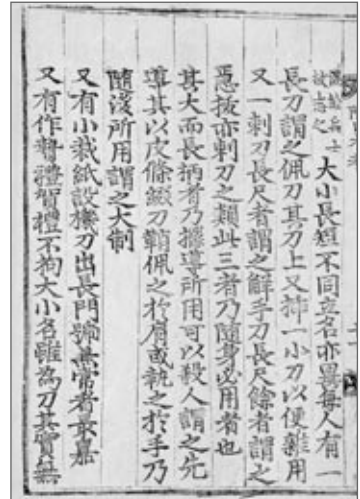 故志之 大小長短不同立名亦異每人有一
長刀謂之佩刀其刀上又揷一小刀以便雜用
又一刺刀長尺者謂之解手刀長尺餘者謂之
急拔亦刺刀之類此三者乃隨身必用者也
其大而長柄者乃擺導所用可以殺人謂之先
導其以皮條綴刀鞘佩之於肩或執之於手乃
隨後所用謂之大制
又有小裁紙設機刀出長門號兼常者最嘉
又有作贄禮賀禮不拘大小名雖為刀其實無